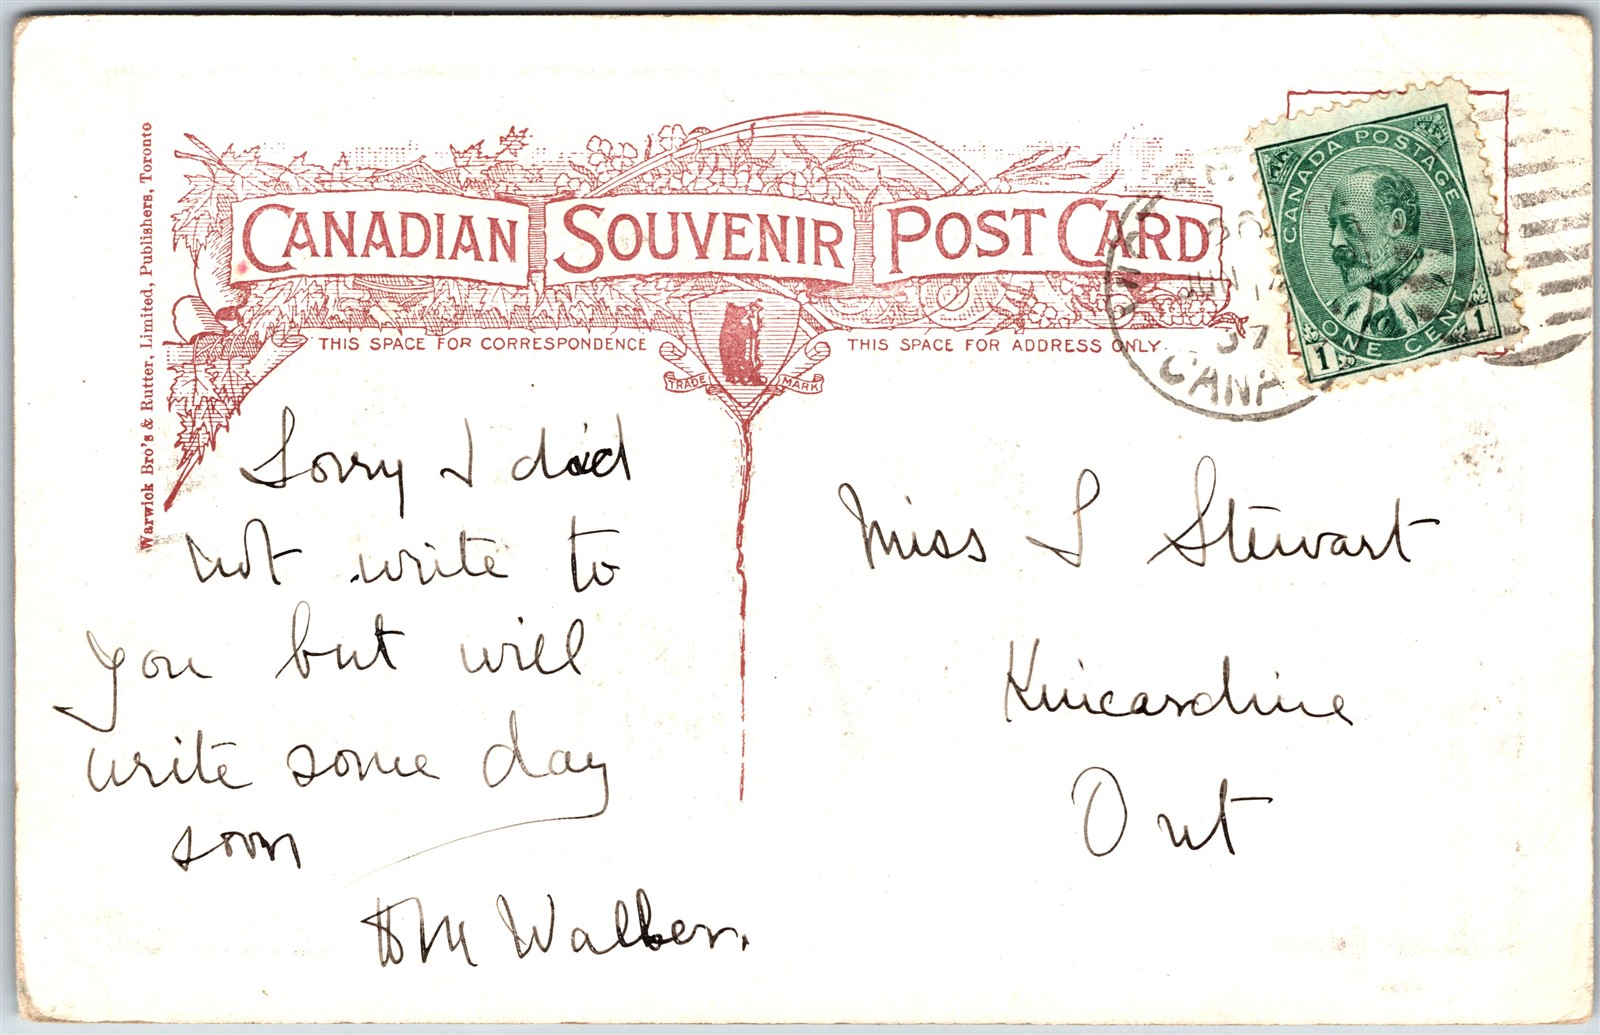 Warwick Bro's & Rutter, Limited, Publishers, Toronto
CANADIAN SOUVENIR POST CARD
THIS SPACE FOR CORRESPONDENCE
THIS SPACE FOR ADDRESS ONLY.
TRADE MARK
CANADA POSTAGE
ONE CENT
1 1
JUN
07
CANA
Sorry I did
not write to
you but will
write some day
soon
HM Walker.
Miss S Stewart
Kincardine
Ont